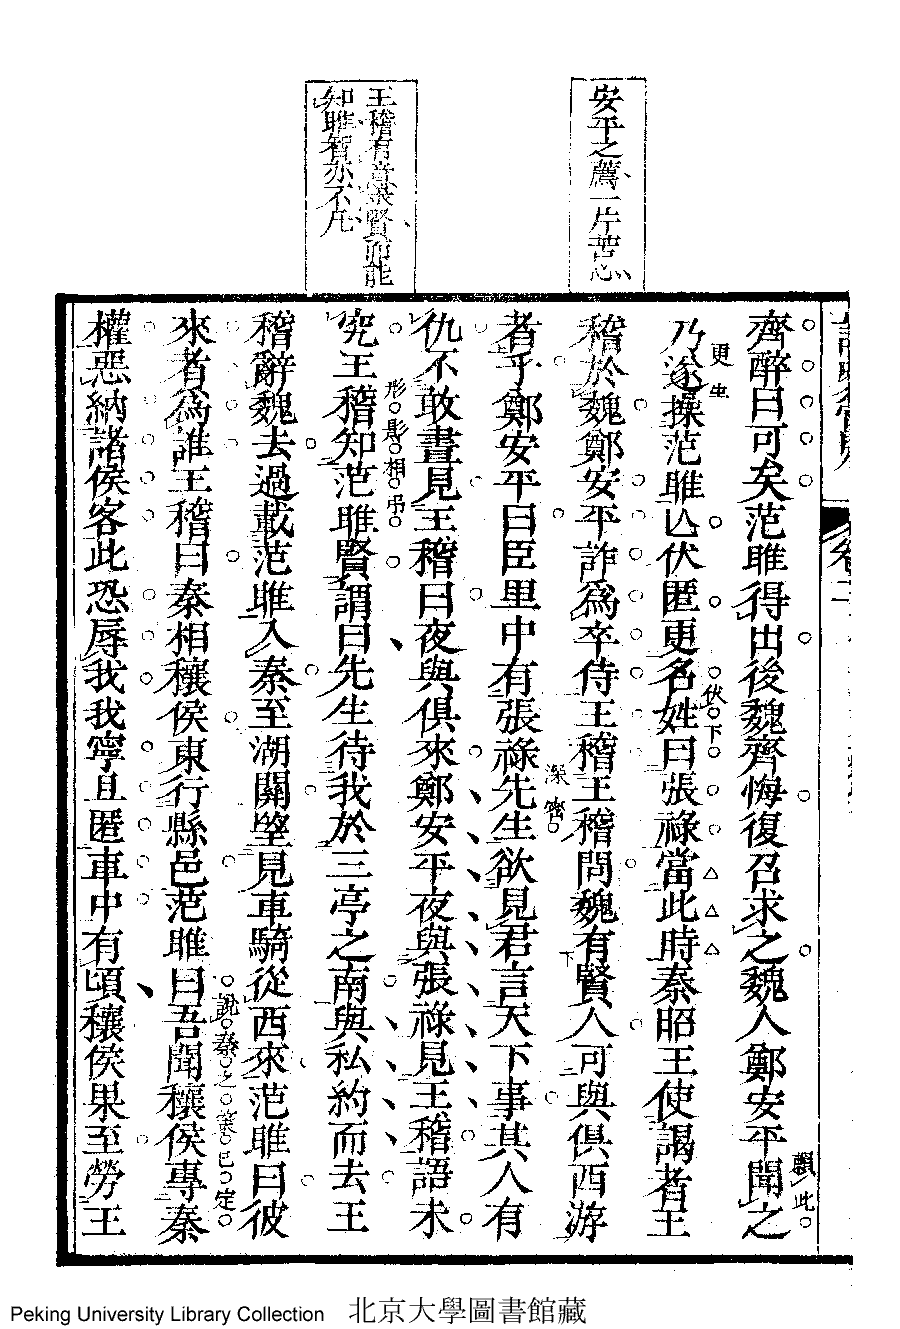 安平之薦一片苦忠
王稽有意求賢而能
知雎智亦不凡
齊醉曰可矣范雎得出後魏齊悔復召求之魏人鄭安平聞之
賴此
更生
乃遂操范雎亾伏匿更名姓曰張祿當此時秦昭王使謁者王
伏下
稽於魏鄭安平詐爲卒侍王稽王稽問魏有賢人可與俱西游
者乎鄭安平曰臣里中有張祿先生欲見君言天下事其人有
仇不敢晝見王稽曰夜與俱來鄭安平夜與張祿見王稽語未
形影相弔
究王稽知范雎賢謂曰先生待我於三亭之南與私約而去王
稽辭魏去過載范雎入秦至湖關望見車騎從西來范雎曰彼
說秦之策已定
來者爲誰王稽曰秦相穰侯東行縣邑范雎曰吾聞穰侯專秦
權惡納諸侯客此恐辱我我寧且匿車中有頃穰侯果至勞王
Peking University Library Collection 北京大學圖書館藏